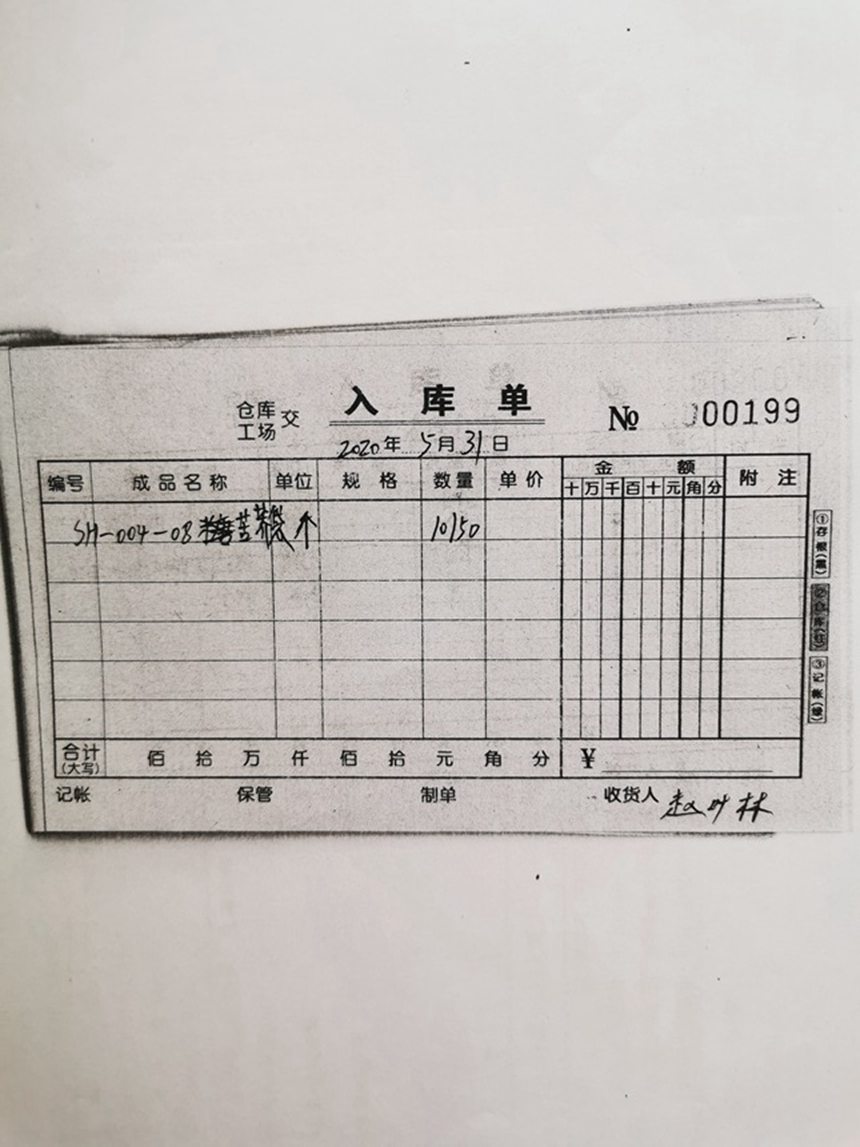 仓库
工场 交 入库单 № 00199
2020年 5月31日
编号 成品名称 单位 规格 数量 单价 金额 附注
十 万 千 百 十 元 角 分
SH-004-08 苦荞 个 10150
①存根(黑)
②仓库(红)
③记帐(绿)
合计(大写) 佰 拾 万 仟 佰 拾 元 角 分 ¥
记帐 保管 制单 收货人 赵叶林